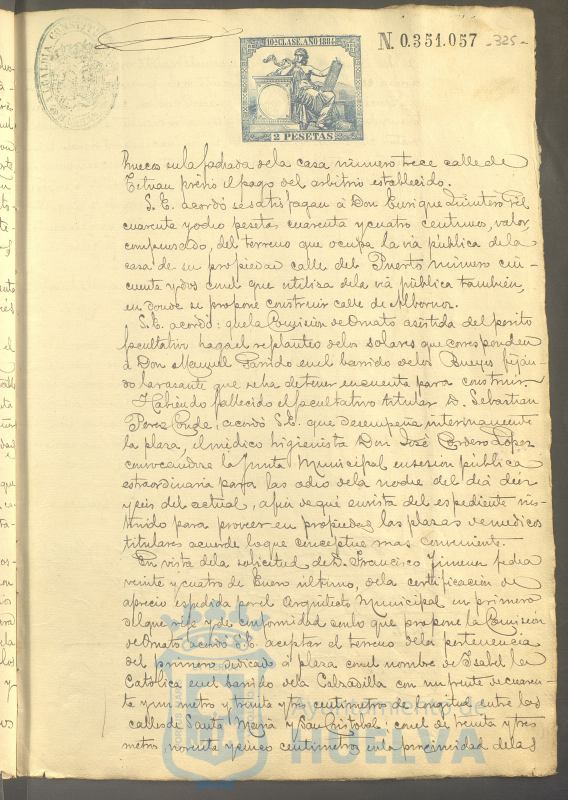 ALCALDIA CONSTITUCIONAL
10ª CLASE. AÑO 1884
N. 0.351.057
-325-
2 PESETAS
huecos en la fachada de la casa número trece calle de
Tetuan prévio el pago del arbitrio establecido.
S. E. acordó se satisfagan á Don Enrique Quintero
cuarenta y ocho pesetas cuarenta y cuatro centimos, valor,
compensado, del terreno que ocupa la via pública de la
casa de su propiedad calle del Puerto número cin-
cuenta y dos con el que utiliza de la via pública tambien,
en donde se propone construir calle de Albornos.
S. E. acordó: que la Comision de Ornato asistida del perito
facultativo haga el replanteo de los solares que corresponden
á Don Manuel Garrido en el barrido de los Bueyes fijan-
do la rasante que se ha de tener en cuenta para construir.
Habiendo fallecido el facultativo titular D. Sebastian
Perez Conde, acordó S. E. que desempeñe interinamente
la plaza, el médico higienista Don José Cordero Lopez
convocandose la Junta Municipal en sesion pública
extraordinaria para las ocho de la noche del dia diez
y seis del actual, á fin de que en vista del expediente ins-
truido para proveer en propiedad las plazas de medicos
titulares acuerde lo que conceptue mas conveniente.
En vista de la solicitud de D. Francisco Jimenez fecha
veinte y cuatro de Enero último, de la certificacion de
aprecio expedida por el Arquitecto Municipal en primero
del que rije y de conformidad con lo que propone la Comision
de Ornato acordó S. E. aceptar el terreno de la pertenencia
del primero dedicado á plaza con el nombre de Isabel la
Católica en el barrido de la Calzadilla con un frente de cuaren-
ta y un metro y treinta y tres centimetros de longitud entre las
calles de Santa Maria y San Cristobal; con el de treinta y tres
metros noventa y cinco centimetros en la proximidad de la
HUELVA